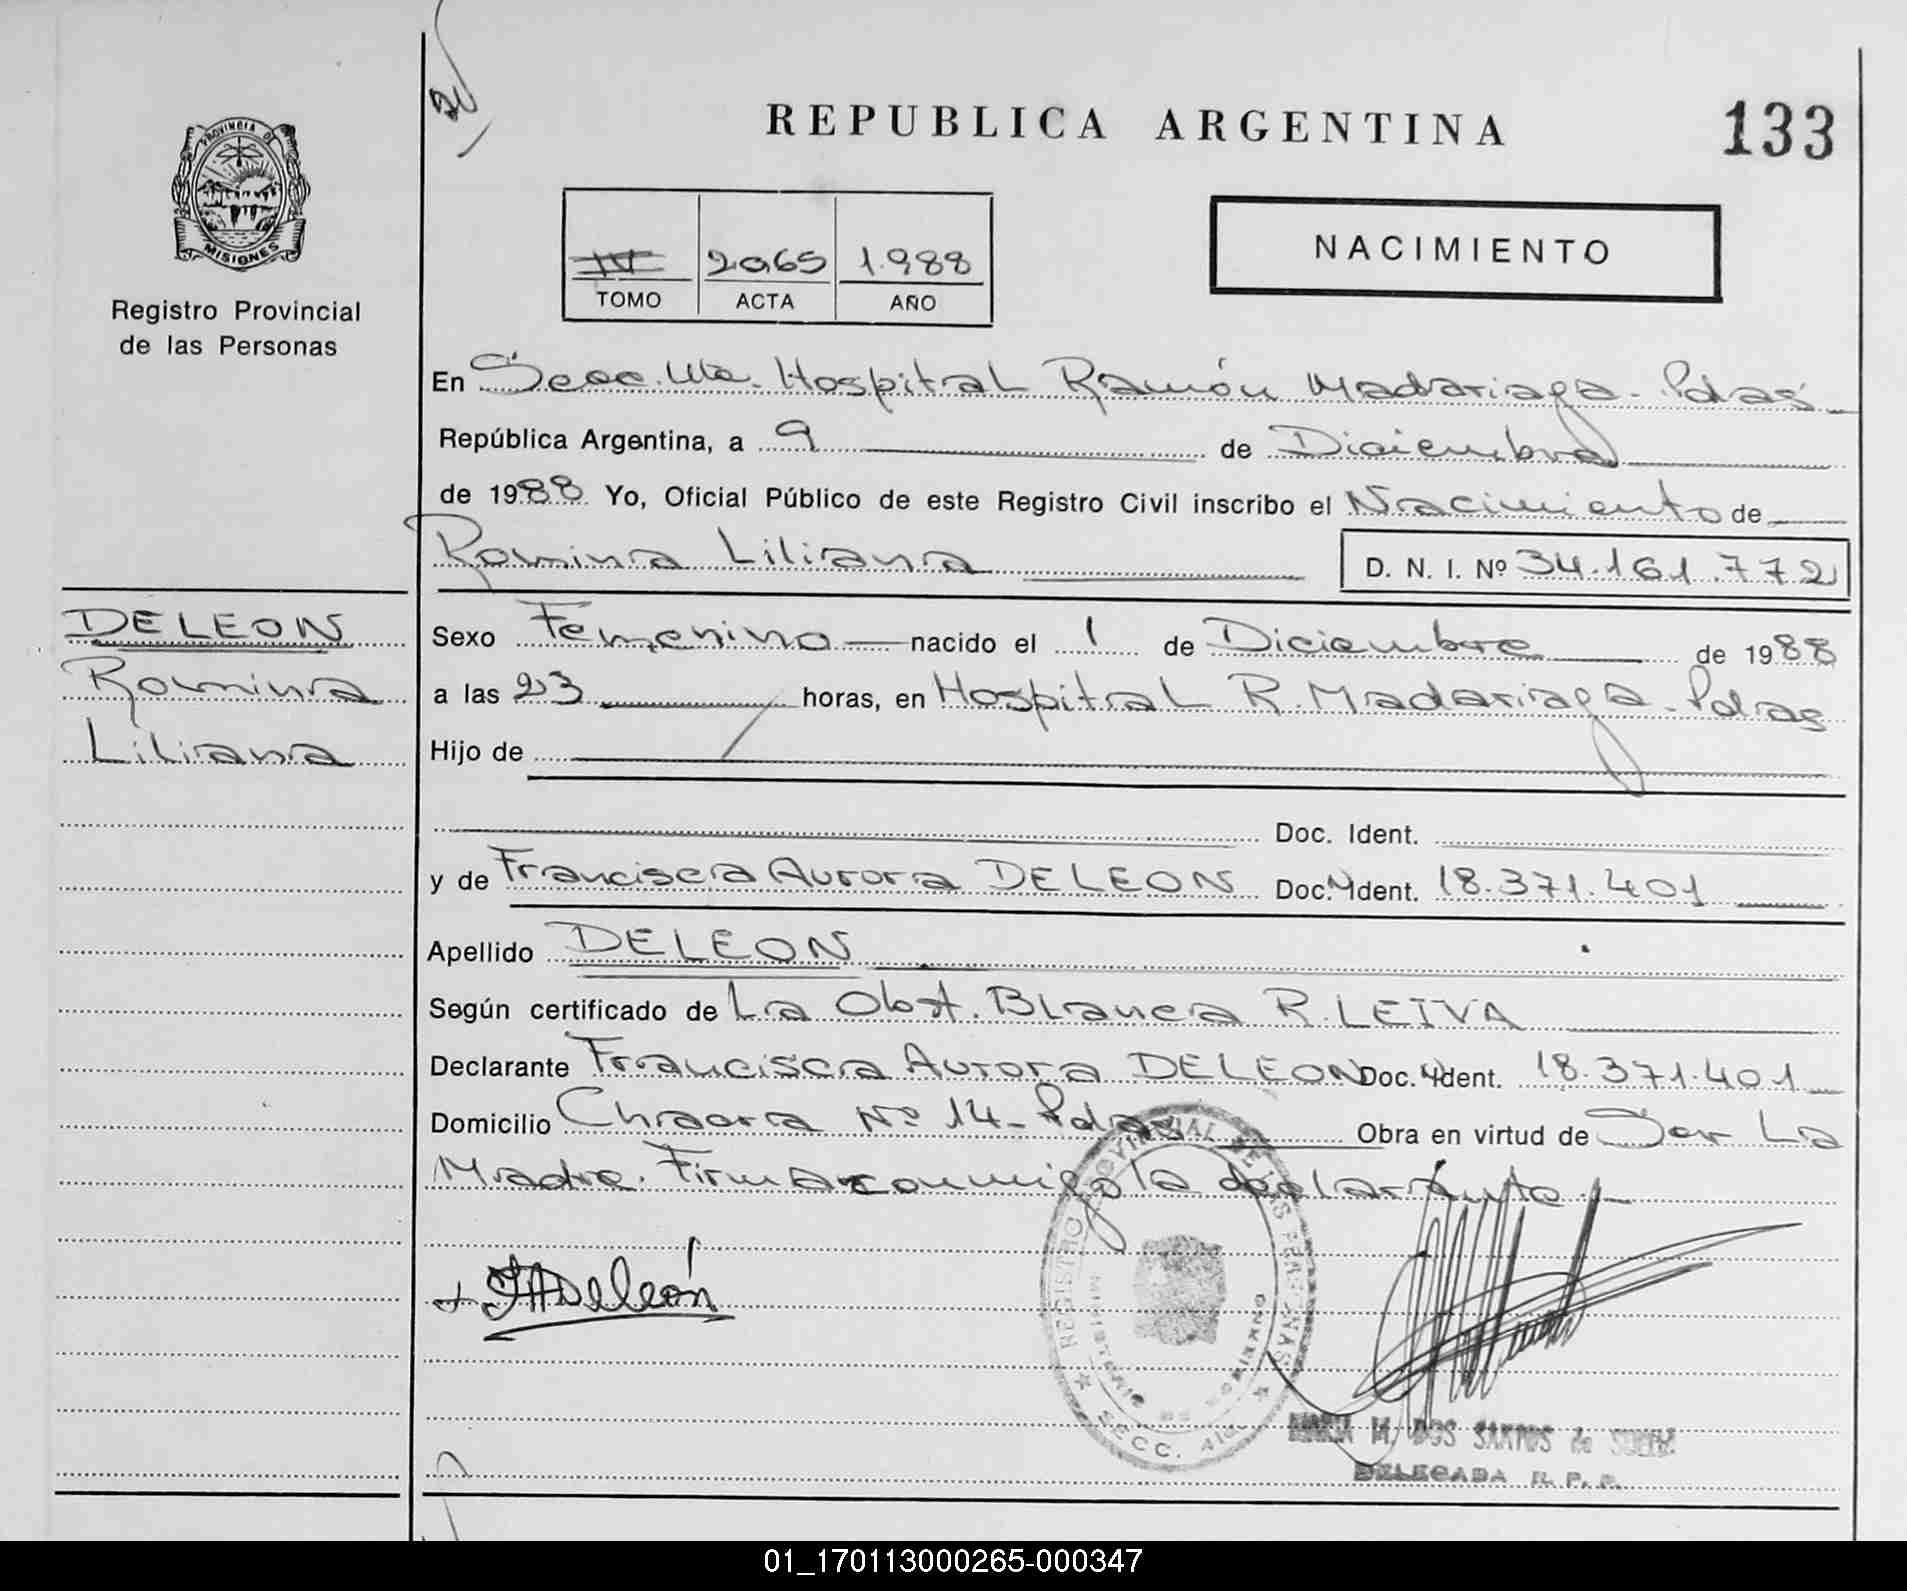 REPUBLICA ARGENTINA
133
PROVINCIA DE
MISIONES
Registro Provincial
de las Personas
2065 1.988
TOMO ACTA AÑO
NACIMIENTO
En Secc. Hospital Ramón Madariaga - Pdas
República Argentina, a 9 de Diciembre
de 1988 Yo, Oficial Público de este Registro Civil inscribo el Nacimiento de
Romina Liliana D. N. I. Nº 34.161.772
DELEON
Romina
Liliana
Sexo Femenino nacido el 1 de Diciembre de 1988
a las 23 horas, en Hospital R. Madariaga - Pdas
Hijo de
Doc. Ident.
y de Francisca Aurora DELEON Doc. Ident. 18.371.401
Apellido DELEON
Según certificado de La Obst. Blanca R. LEIVA
Declarante Francisca Aurora DELEON Doc. Ident. 18.371.401
Domicilio Chacra Nº 14 - Pdas Obra en virtud de Ser La
Madre. Firma conmigo la declarante
FADeleón
REGISTRO PROVINCIAL DE LAS PERSONAS
MINISTERIO DE GOBIERNO
SECC.
MARIA M. DOS SANTOS de
DELEGADA R. P. P.
01_170113000265-000347